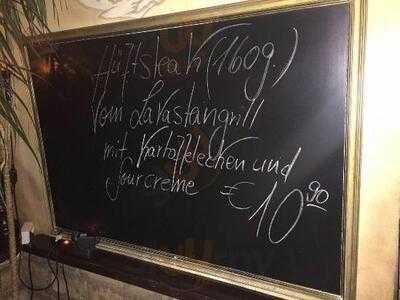 Hüftsteak (160g.)
Vom Lavasteingrill
mit Kartoffelecken und
Sourcreme € 10 90